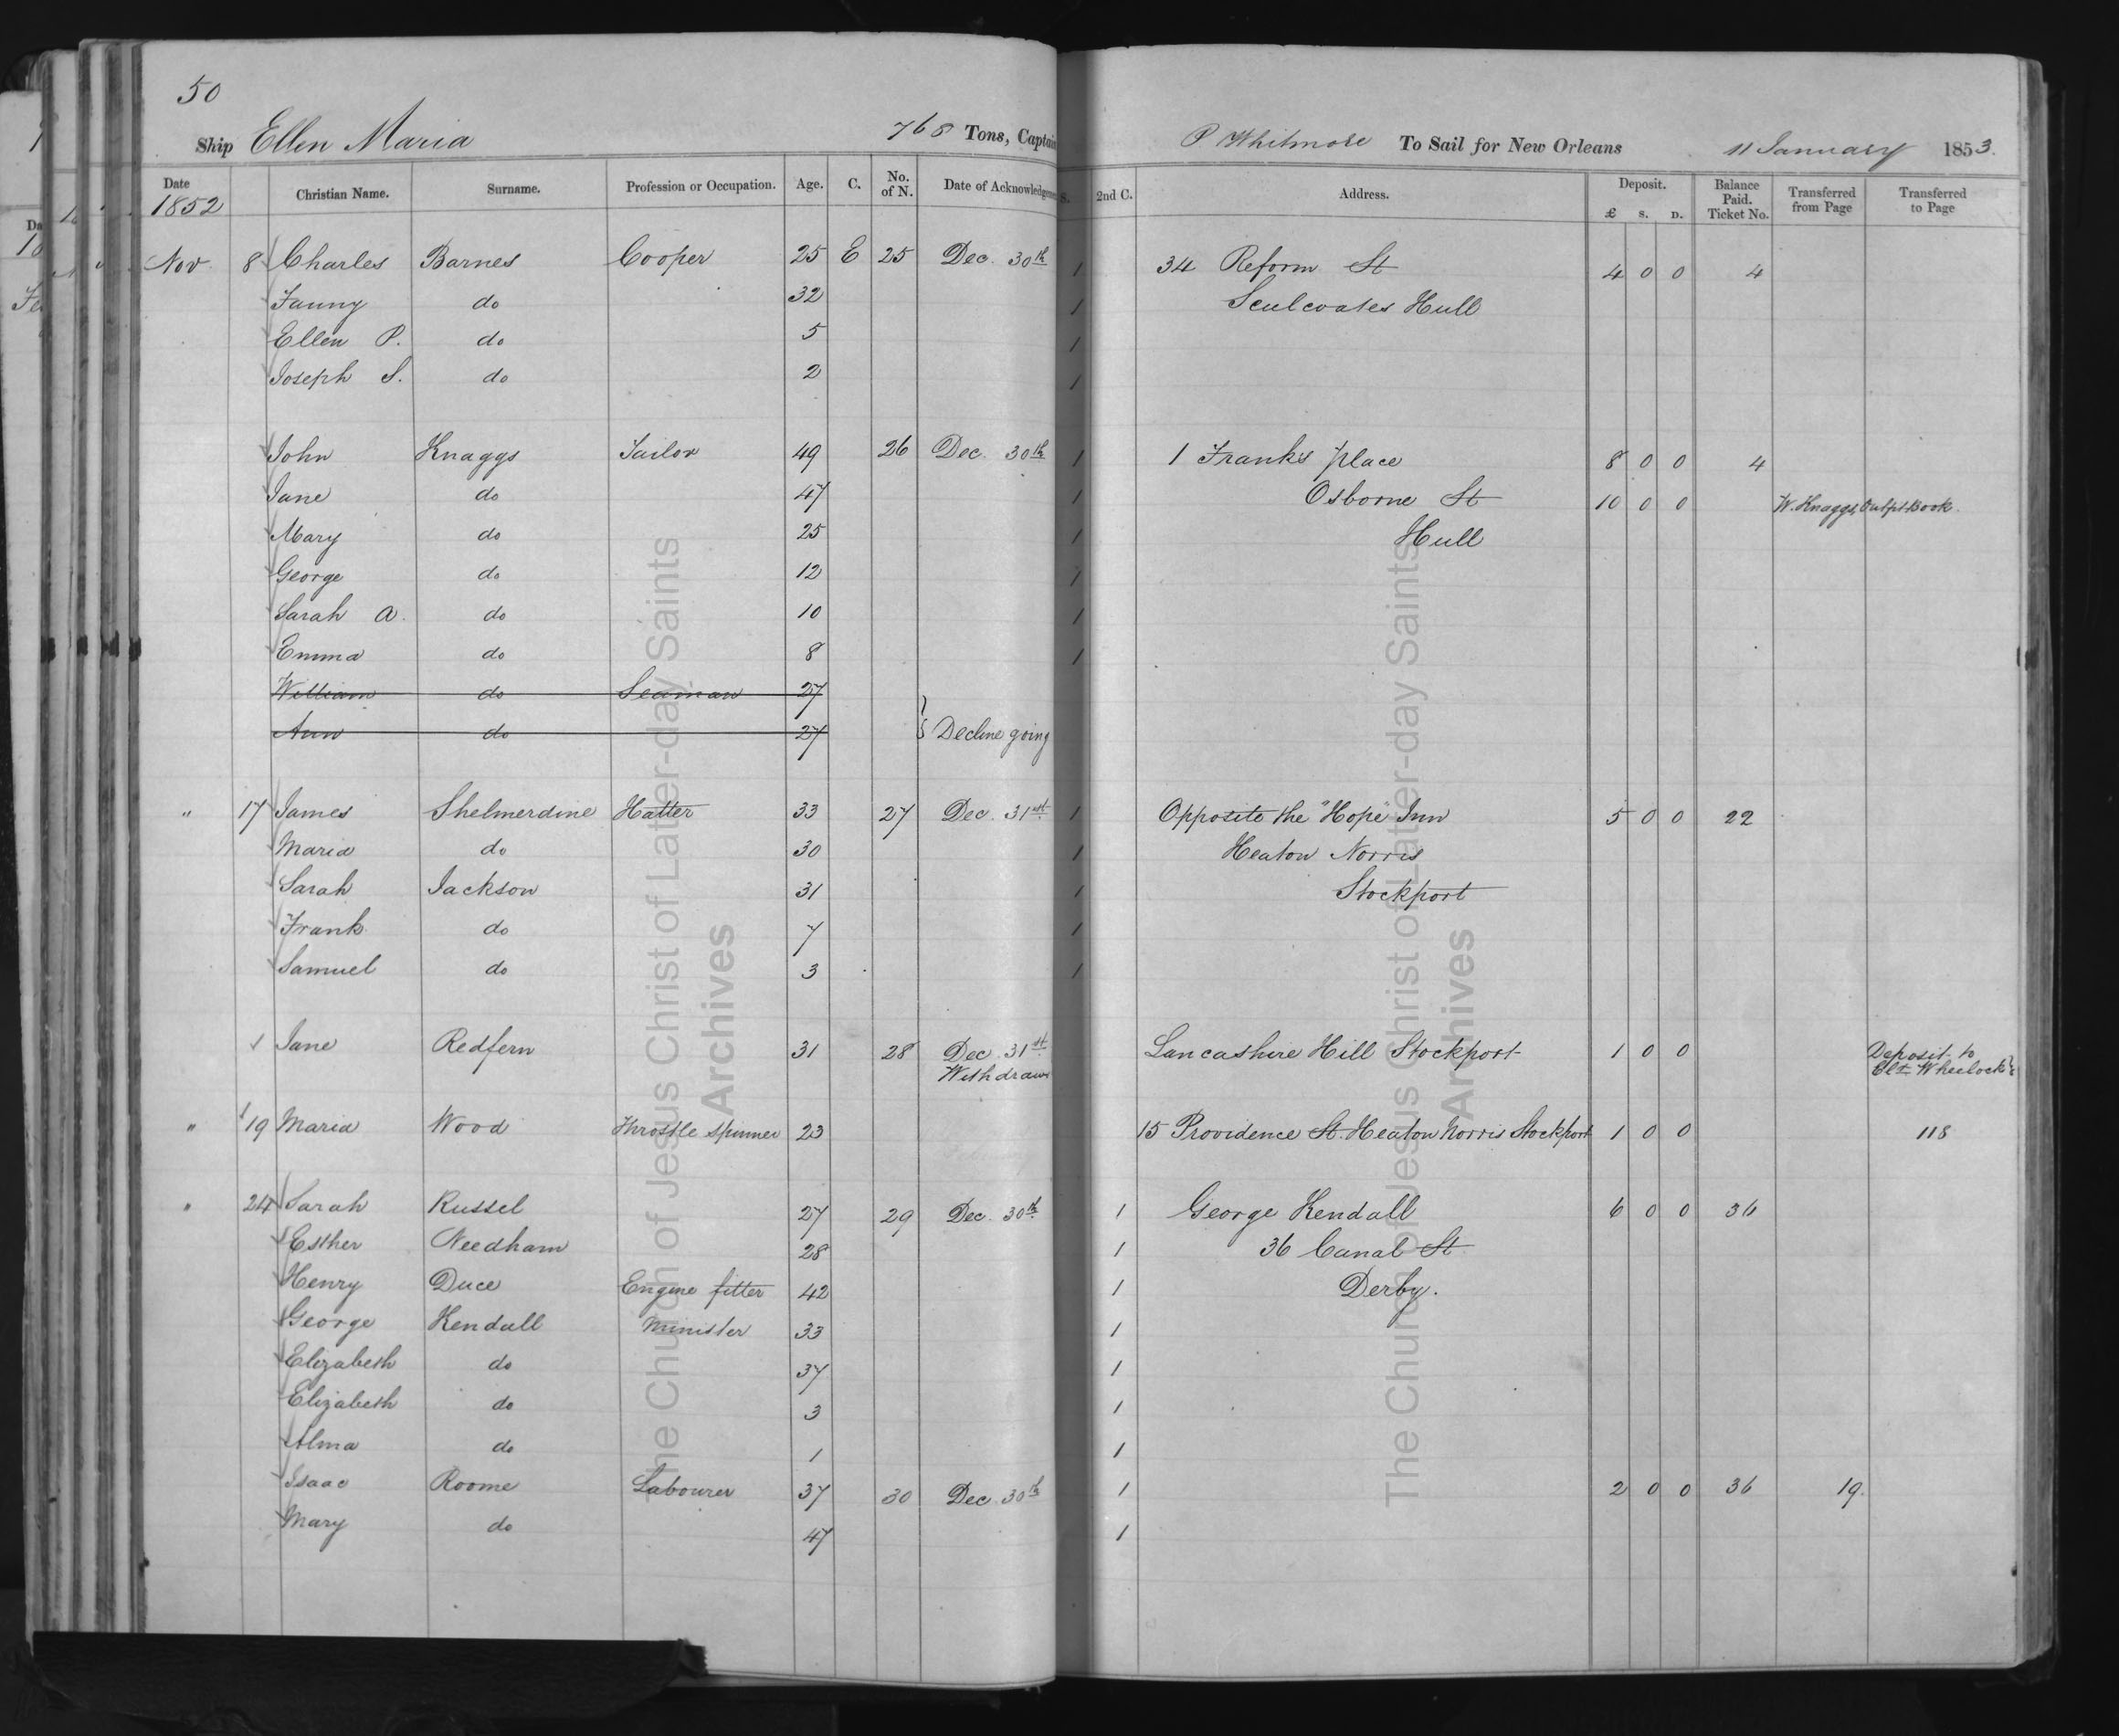 50
Ship Ellen Maria 768 Tons, Captain P Whitmore To Sail for New Orleans 11 January 1853.
Date 1852 Christian Name. Surname. Profession or Occupation. Age. C. No. of N. Date of Acknowledgment S. 2nd C. Address. Deposit. £ S. D. Balance Paid. Ticket No. Transferred from Page Transferred to Page
Nov. 8 Charles Barnes Cooper 25 E 25 Dec. 30th 1 34 Reform St 4 0 0 4
Fanny do 32 1 Sculcoates Hull
Ellen P. do 5 1
Joseph S. do 2 1
John Knaggs Tailor 49 26 Dec. 30th 1 1 Frank's place 8 0 0 4
Jane do 47 1 Osborne St 10 0 0 W. Knaggs, Outfit Book.
Mary do 25 1 Hull
George do 12 1
Sarah A. do 10 1
Emma do 8 1
William do Seaman 27
Ann do 27 } Decline going
" 17 James Shelmerdine Hatter 33 27 Dec. 31st 1 Opposite the "Hope" Inn 5 0 0 22
Maria do 30 1 Heaton Norris
Sarah Jackson 31 1 Stockport
Frank do 7 1
Samuel do 3 1
Jane Redfern 31 28 Dec. 31st Lancashire Hill Stockport 1 0 0 Deposit to
Withdrawn Wheelock
" 19 Maria Wood Throstle Spinner 23 15 Providence St. Heaton Norris Stockport 1 0 0 118
" 24 Sarah Russel 27 29 Dec. 30th 1 George Kendall 6 0 0 36
Esther Needham 28 1 36 Canal St
Henry Duce Engine fitter 42 1 Derby.
George Kendall Minister 33 1
Elizabeth do 37 1
Elizabeth do 3 1
Alma do 1 1
Isaac Roome Labourer 37 30 Dec. 30th 1 2 0 0 36 19.
Mary do 47 1
The Church of Jesus Christ of Latter-day Saints
Archives
The Church of Jesus Christ of Latter-day Saints
Archives